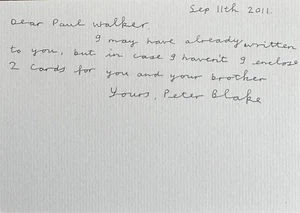 Sep 11th 2011.
Dear Paul Walker,
I may have already written
to you, but in case I haven't I enclose
2 cards for you and your brother
Yours, Peter Blake